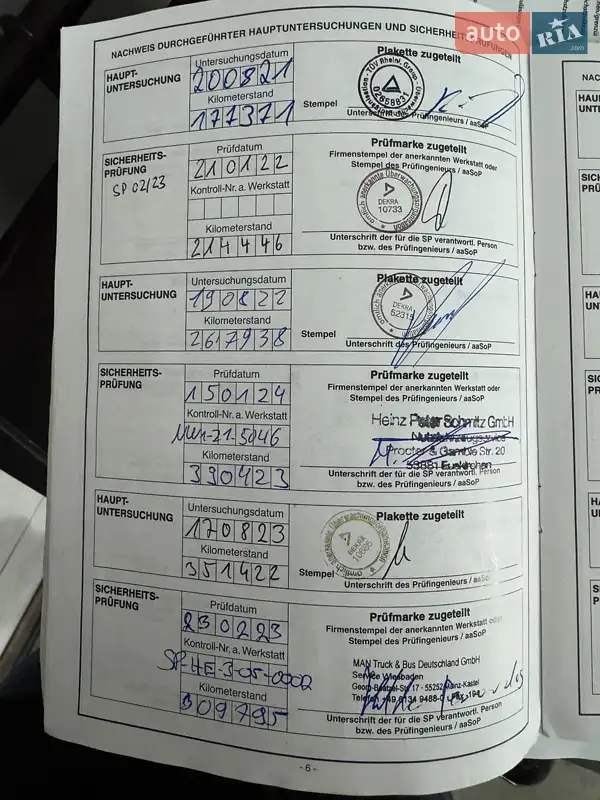 NACHWEIS DURCHGEFÜHRTER HAUPTUNTERSUCHUNGEN UND SICHERHEITSPRÜFUNGEN
auto RIA .com
HAUPT-
UNTERSUCHUNG
Untersuchungsdatum
200821
Kilometerstand
177371
Stempel
Plakette zugeteilt
02658831
Unterschrift des Prüfingenieurs / aaSoP
SICHERHEITS-
PRÜFUNG
SP 02/23
Prüfdatum
210122
Kontroll-Nr. a. Werkstatt
Kilometerstand
214446
Prüfmarke zugeteilt
Firmenstempel der anerkannten Werkstatt oder
Stempel des Prüfingenieurs / aaSoP
DEKRA
10733
Unterschrift der für die SP verantwortl. Person
bzw. des Prüfingenieurs / aaSoP
HAUPT-
UNTERSUCHUNG
Untersuchungsdatum
190822
Kilometerstand
267938
Stempel
Plakette zugeteilt
DEKRA
Unterschrift des Prüfingenieurs / aaSoP
SICHERHEITS-
PRÜFUNG
Prüfdatum
150124
Kontroll-Nr. a. Werkstatt
Kilometerstand
390423
Prüfmarke zugeteilt
Firmenstempel der anerkannten Werkstatt oder
Stempel des Prüfingenieurs / aaSoP
Heinz Peter Schmitz GmbH
Nutzfahrzeugservice
Procter & Gamble Str. 20
53881 Euskirchen
Unterschrift der für die SP verantwortl. Person
bzw. des Prüfingenieurs / aaSoP
HAUPT-
UNTERSUCHUNG
Untersuchungsdatum
170823
Kilometerstand
351422
Stempel
Plakette zugeteilt
DEKRA
Unterschrift des Prüfingenieurs / aaSoP
SICHERHEITS-
PRÜFUNG
Prüfdatum
230223
Kontroll-Nr. a. Werkstatt
SP-HE-3-05-0002
Kilometerstand
309795
Prüfmarke zugeteilt
Firmenstempel der anerkannten Werkstatt oder
Stempel des Prüfingenieurs / aaSoP
MAN Truck & Bus Deutschland GmbH
Service Wiesbaden
Unterschrift der für die SP verantwortl. Person
bzw. des Prüfingenieurs / aaSoP
- 6 -